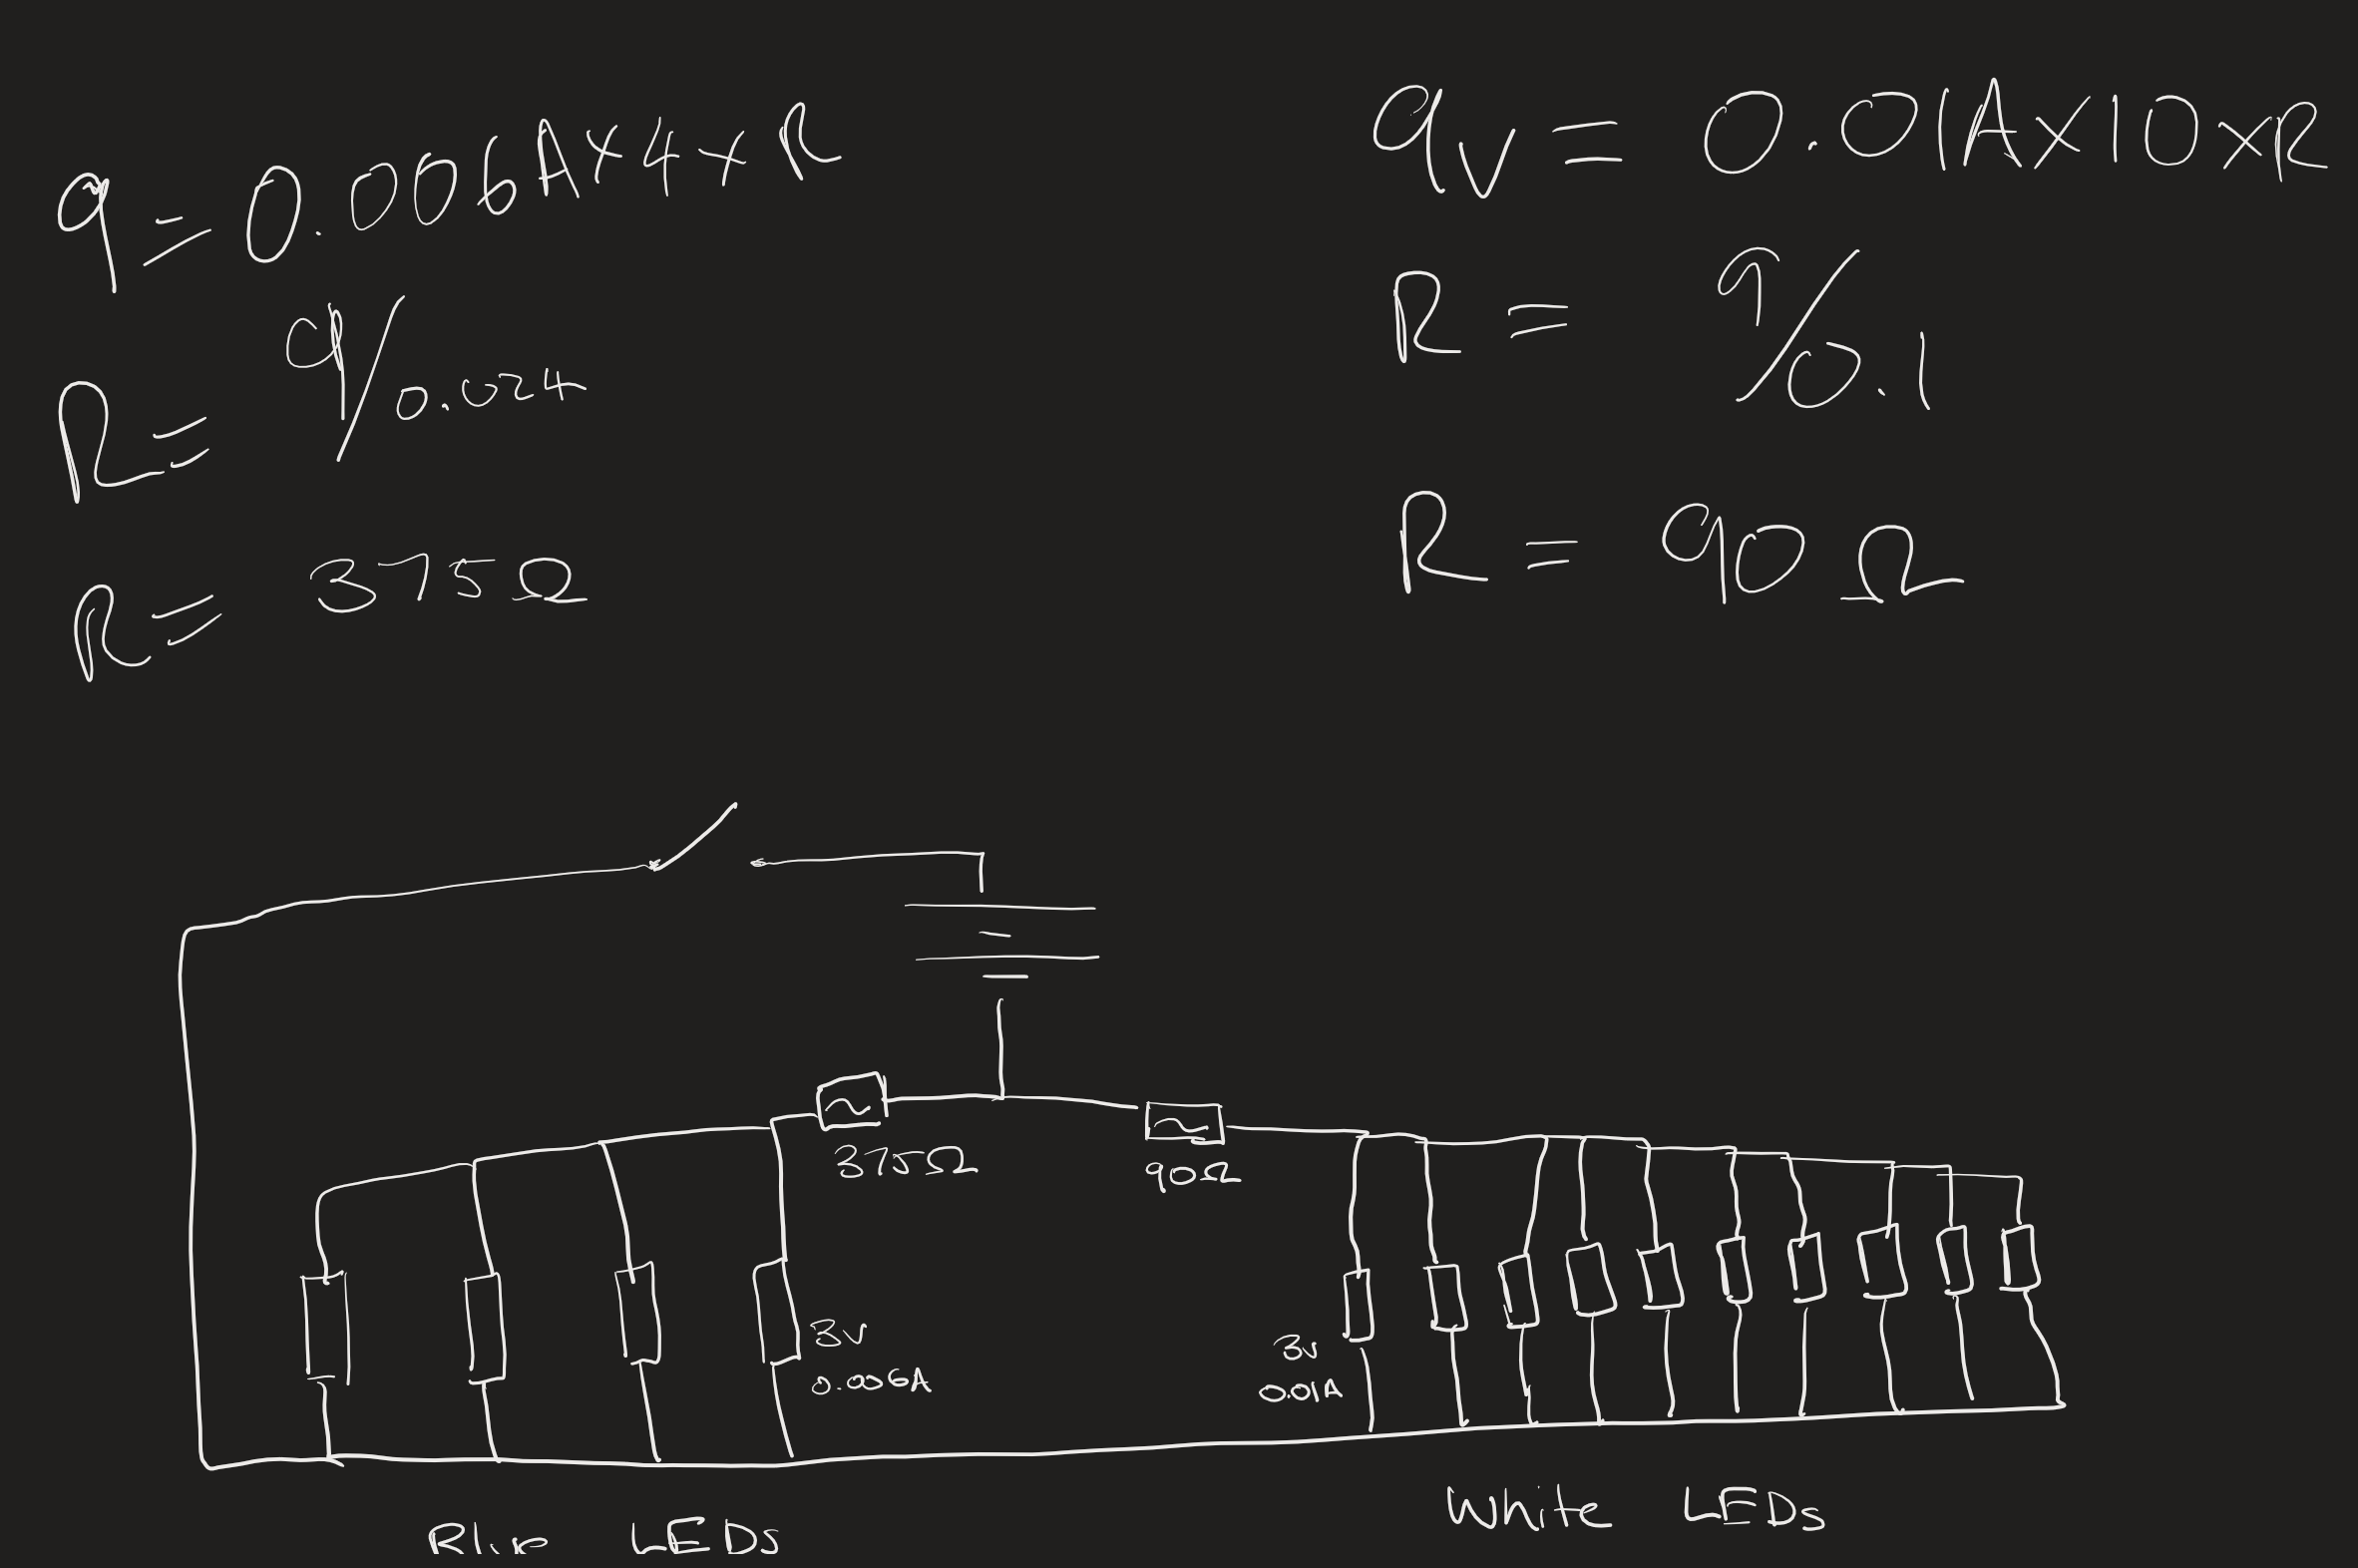 9 = 0.006A × 4 × R
R = 9/0.024
R = 375Ω
9V = 0.01A × 10 × R
R = 9/0.1
R = 90 Ω
375Ω
90Ω
3V
0.006A
3V
0.01A
Blue LEDs
White LEDs